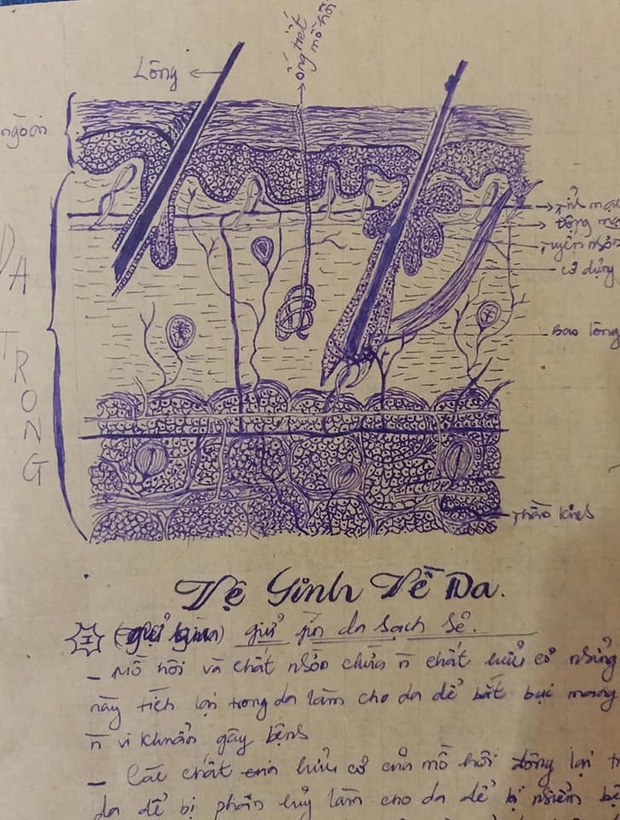 Lông
ống tiết
mồ hôi
ngoài
DA
TRONG
cơ dựng
Bao lông
Thần kinh
Vệ Sinh Về Da.
I giử gìn da sạch sẽ.
- Mồ hôi và chất nhờn chứa n chất hữu cơ những
này tích lại trong da làm cho da dể bắt bụi mang
n vi khuẩn gây bệnh
- Các chất hữu cơ của mồ hôi đông lại
da dể bị phân hủy làm cho da dể bị nhiểm